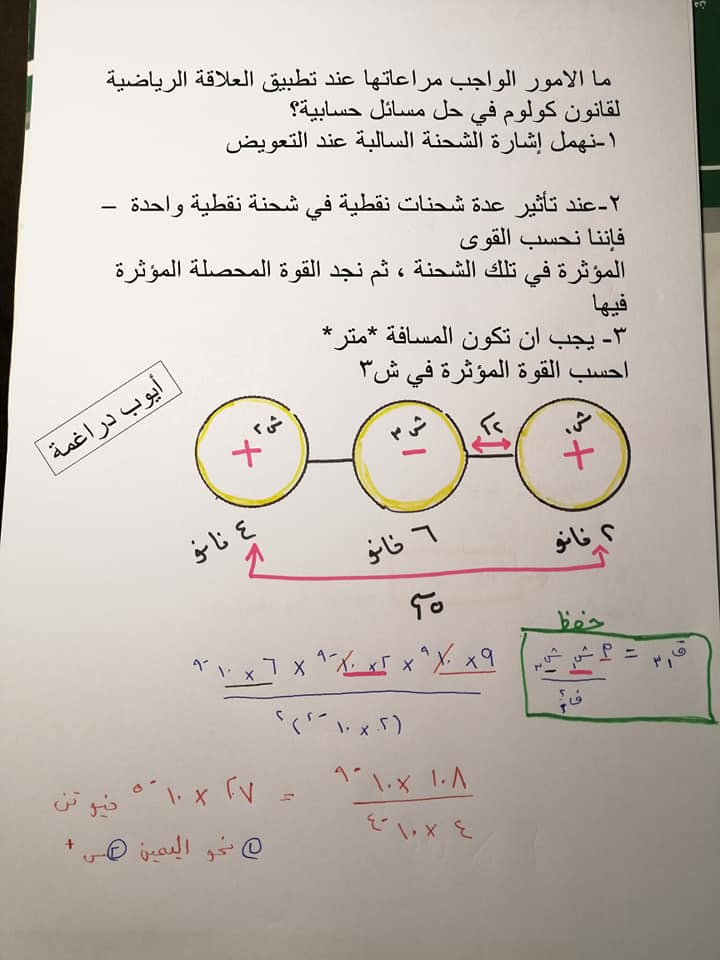 ما الامور الواجب مراعاتها عند تطبيق العلاقة الرياضية
لقانون كولوم في حل مسائل حسابية؟
١-نهمل إشارة الشحنة السالبة عند التعويض
٢-عند تأثير عدة شحنات نقطية في شحنة نقطية واحدة –
فإننا نحسب القوى
المؤثرة في تلك الشحنة ، ثم نجد القوة المحصلة المؤثرة
فيها
٣- يجب ان تكون المسافة *متر*
احسب القوة المؤثرة في ش٣
أيوب دراغمة
ش١ + ٢سم ش٣ - ش٢ +
٢ نانو ٦ نانو ٤ نانو
٥سم
حفظ
ق١،٣ = م ش١ ش٣
ف٢
٩×١٠^٩ × ٢×١٠^-٩ × ٦×١٠^-٩
(٢×١٠^-٢)^٢
١٠٨×١٠^-٩ = ٢٧ × ١٠^-٥ نيوتن
٤×١٠^-٤
① نحو اليمين ② س+